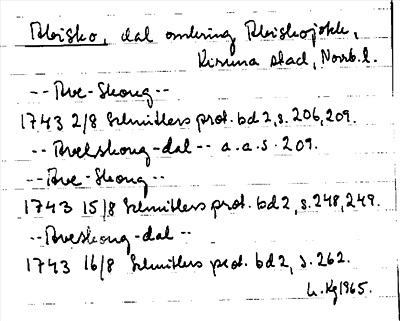 Abisko, dal omkring Abiskojokk,
Kiruna stad, Norrb.l.
--Ave-Skoug--
1743 2/8 Schnitlers prot. bd 2, s. 206, 209.
--Avelskoug-dal-- a.a.s. 209.
--Ave-Skoug--
1743 15/8 Schnitlers prot. bd 2, s. 248, 249.
--Aveskoug-dal--
1743 16/8 Schnitlers prot. bd 2, s. 262.
L. Kg 1965.